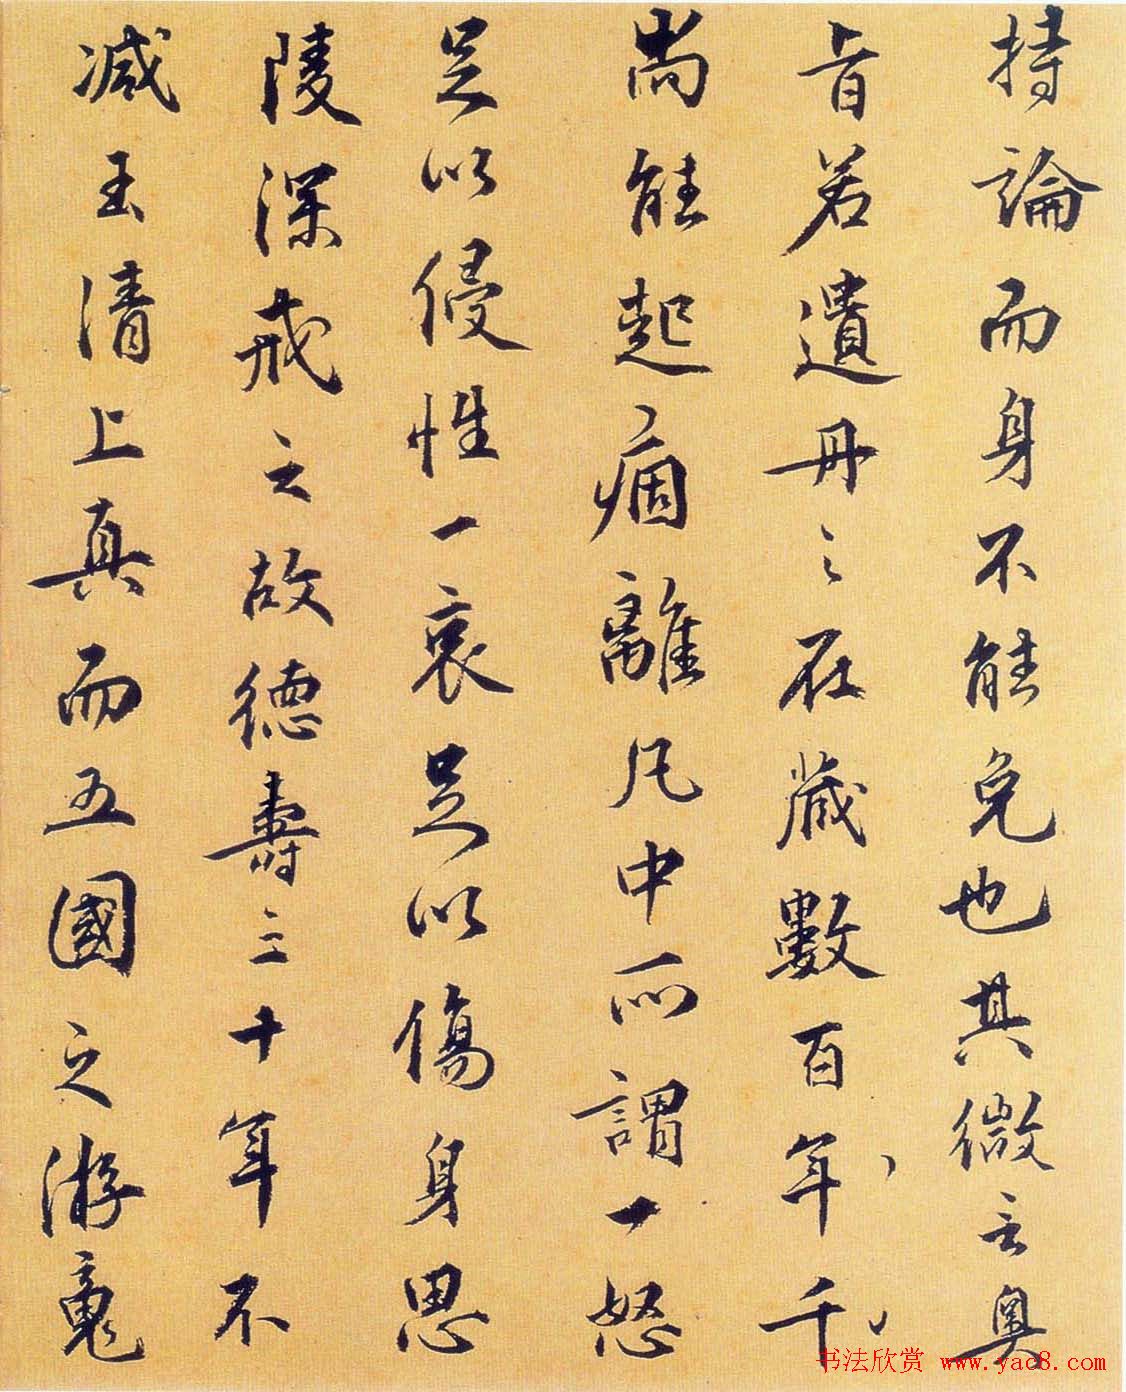 持論而身不能免也其微言奧
旨若遺丹之在藏數百年千
尚能起痼離凡中所謂一怒
足以侵性一哀足以傷身思
陵深戒之故德壽三十年不
減玉清上真而五國之游魂
书法欣赏 www.yac8.com